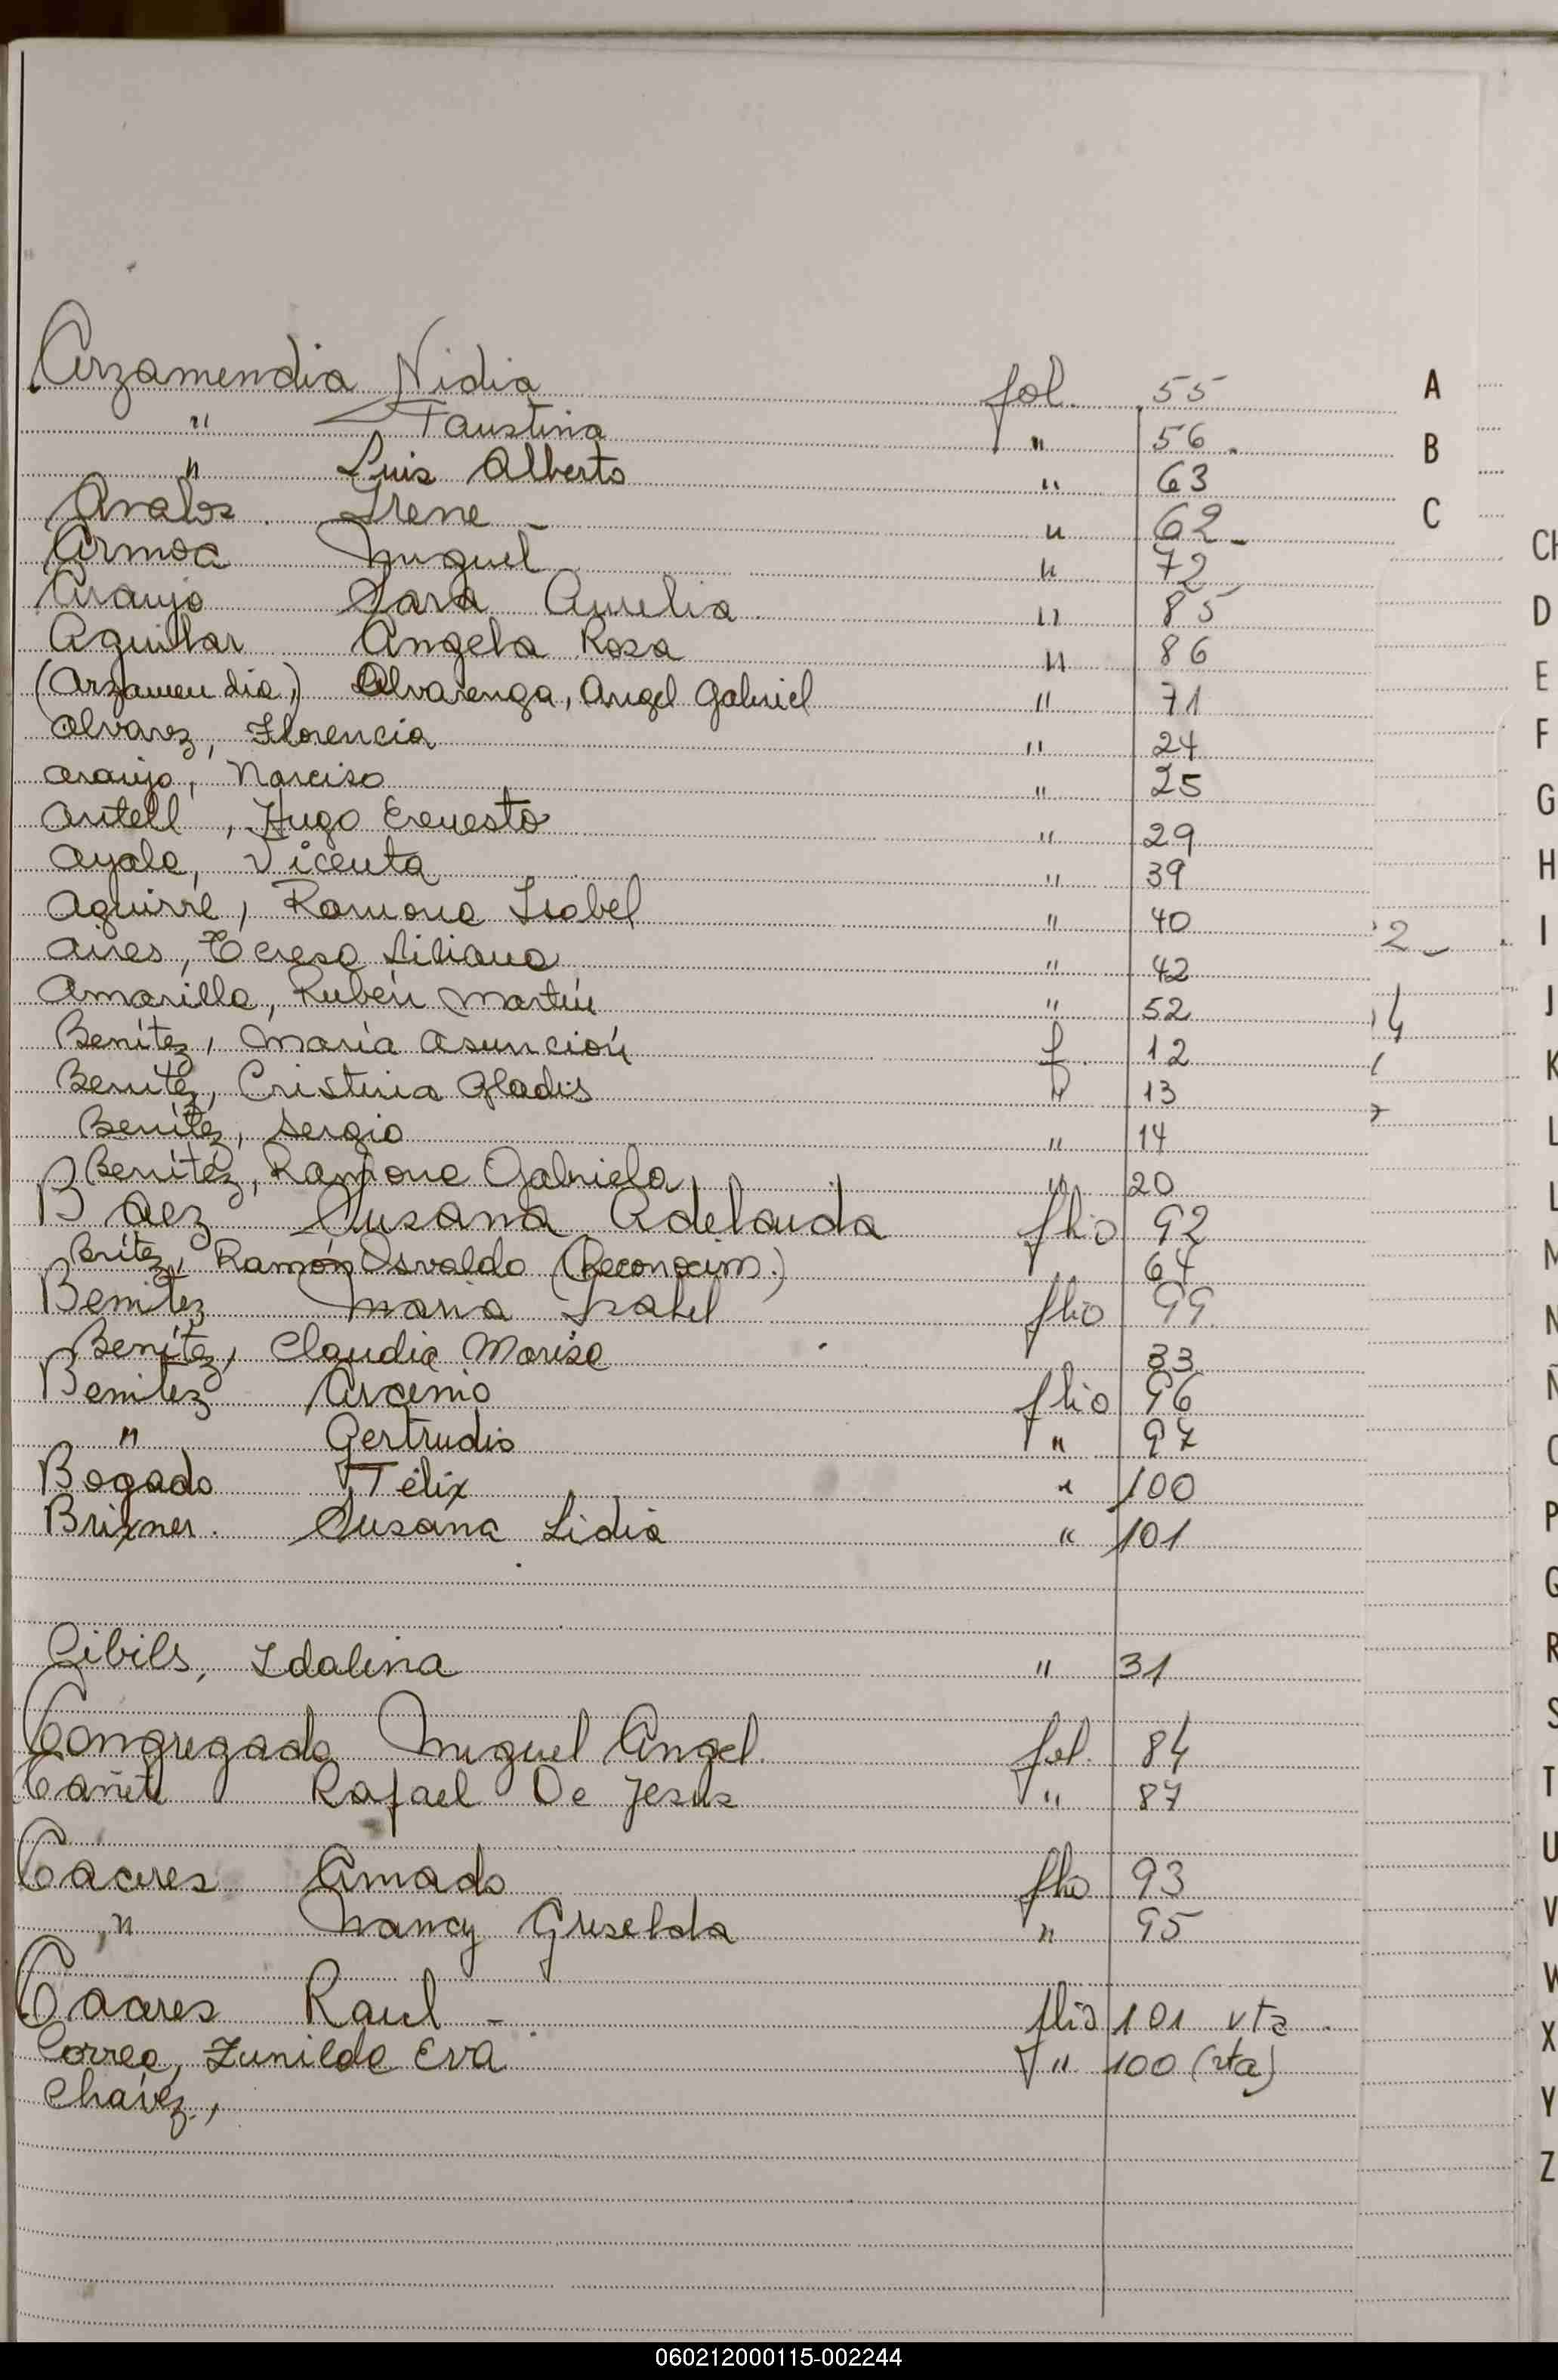 Arzamendia Nidia fol. 55
" Faustina " 56.
" Luis Alberto " 63
Avalos. Irene - " 62-
Armoa Miguel " 72
Araujo Sara Aurelia " 85
Aguilar Angela Rosa " 86
(Arzamendia,) Alvarenga, Angel Gabriel " 71
Alvarez, Florencia " 24
Araujo, Narciso " 25
Antell, Hugo Ernesto " 29
Ayala, Vicenta " 39
Aguirre, Ramona Isabel " 40
Aires, Teresa Liliana " 42
Amarilla, Rubén Martín " 52
Benítez, María Asunción f. 12
Benítez, Cristina Gladis " 13
Benítez, Sergio " 14
Benítez, Ramona Gabriela " 20
Baez Susana Adelaida flio 92
Brítez, Ramón Osvaldo (Reconocim.) 64
Benitez Maria Isabel flio 99
Benítez, Claudia Marisa 33
Benitez Arcenio flio 96
" Gertrudis " 97
Bogado Félix " 100
Brixner. Susana Lidia " 101
Cibils, Idalina " 31
Congregado Miguel Angel. fol. 84
Cañete Rafael De Jesus " 87
Caceres Amado flio 93
" Nancy Griselda " 95
Caceres Raul - flio 101 vta
Correa, Zunilda Eva " 100 (vta)
Chávez,
A
B
C
CH
D
E
F
G
H
I
J
K
L
L
M
N
Ñ
O
P
Q
R
S
T
U
V
W
X
Y
Z
060212000115-002244